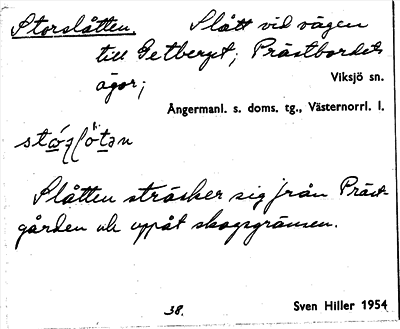 Storslåtten. Slått vid vägen
till Getberget; Prästbordets
ägor;
Viksjö sn.
Ångermanl. s. doms. tg., Västernorrl. l.
Slåtten sträcker sig från Präst-
gården och uppåt skogsgränsen.
38.
Sven Hiller 1954